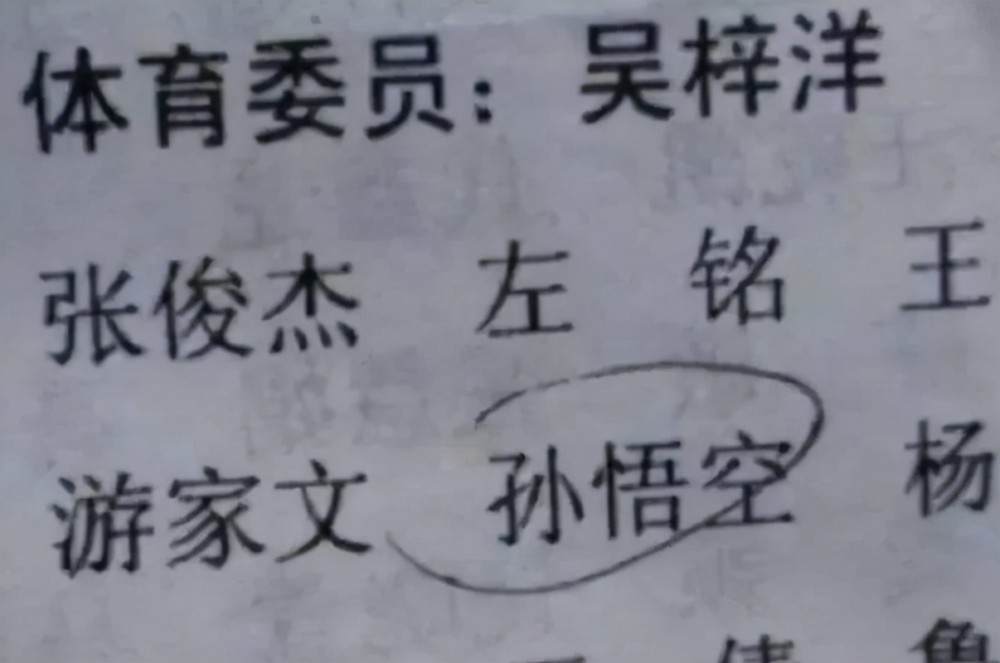 体育委员：吴梓洋
张俊杰 左 铭 王
游家文 孙悟空 杨
倩 鲁